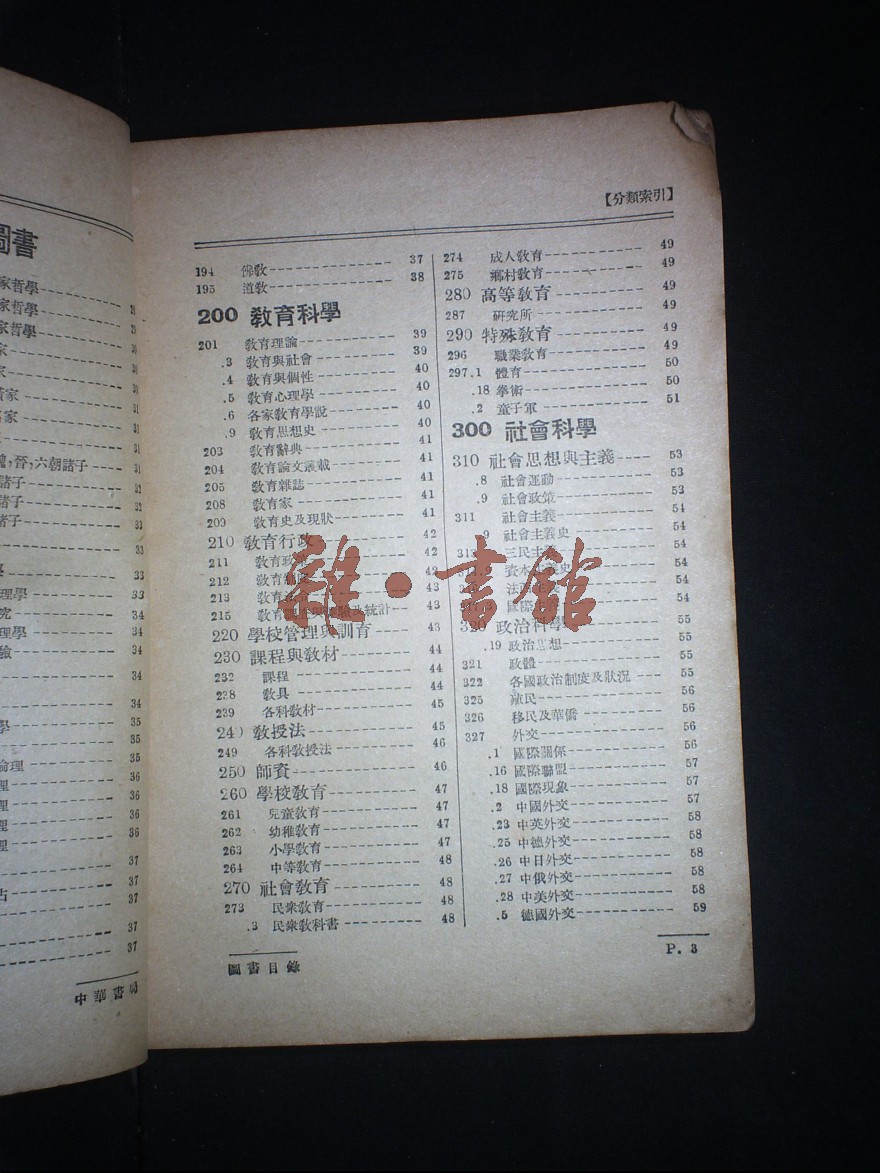 圖書
家哲學
家哲學
家哲學
家
家
家
魏,晉,六朝諸子
諸子
諸子
33
學 33
理學 33
究 34
理學 34
驗 34
34
學 35
35
論理 35
理 36
理 36
理 36
理 36
37
古 37
37
37
37
中華書局
【分類索引】
194 佛敎 37
195 道敎 38
200 敎育科學
201 敎育理論 39
.3 敎育與社會 39
.4 敎育與個性 40
.5 敎育心理學 40
.6 各家敎育學說 40
.9 敎育思想史 40
203 敎育辭典 41
204 敎育論文彙載 41
205 敎育雜誌 41
208 敎育家 41
209 敎育史及現狀 41
210 敎育行政 42
211 敎育政 42
212 敎育 43
213 敎育 43
215 敎育 驗及統計 43
220 學校管理與訓育 43
230 課程與敎材 44
232 課程 44
238 敎具 44
239 各科敎材 45
240 敎授法 45
249 各科敎授法 46
250 師資 46
260 學校敎育 47
261 兒童敎育 47
262 幼稚敎育 47
263 小學敎育 47
264 中等敎育 48
270 社會敎育 48
273 民衆敎育 48
.3 民衆敎科書 48
274 成人敎育 49
275 鄉村敎育 49
280 高等敎育 49
287 硏究所 49
290 特殊敎育 49
296 職業敎育 49
297.1 體育 50
.18 拳術 50
.2 童子軍 51
300 社會科學
310 社會思想與主義 53
.8 社會運動 53
.9 社會政策 53
311 社會主義 54
.9 社會主義史 54
三民主 54
資本 史 54
法 54
國際 54
320 政治科學 55
.19 政治思想 55
321 政體 55
322 各國政治制度及狀況 55
325 殖民 56
326 移民及華僑 56
327 外交 56
.1 國際關係 56
.16 國際聯盟 57
.18 國際現象 57
.2 中國外交 57
.23 中英外交 58
.25 中德外交 58
.26 中日外交 58
.27 中俄外交 58
.28 中美外交 58
.5 德國外交 59
圖書目錄
P. 3
雜·書館